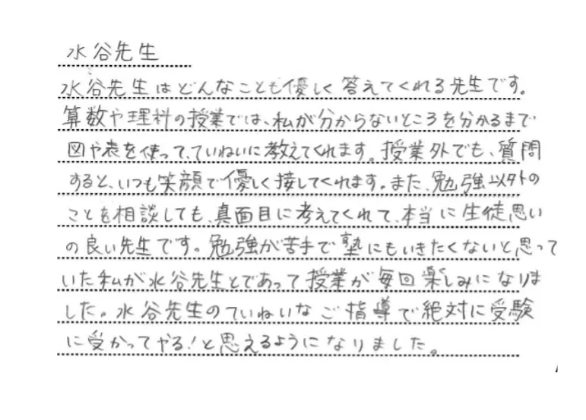 水谷先生
水谷先生はどんなことも優しく答えてくれる先生です。
算数や理科の授業では、私が分からないところを分かるまで
図や表を使って、ていねいに教えてくれます。授業外でも、質問
すると、いつも笑顔で優しく接してくれます。また、勉強以外の
ことを相談しても、真面目に考えてくれて、本当に生徒思い
の良い先生です。勉強が苦手で塾にもいきたくないと思って
いた私が水谷先生とであって授業が毎回楽しみになりま
した。水谷先生のていねいなご指導で絶対に受験
に受かってやる！と思えるようになりました。